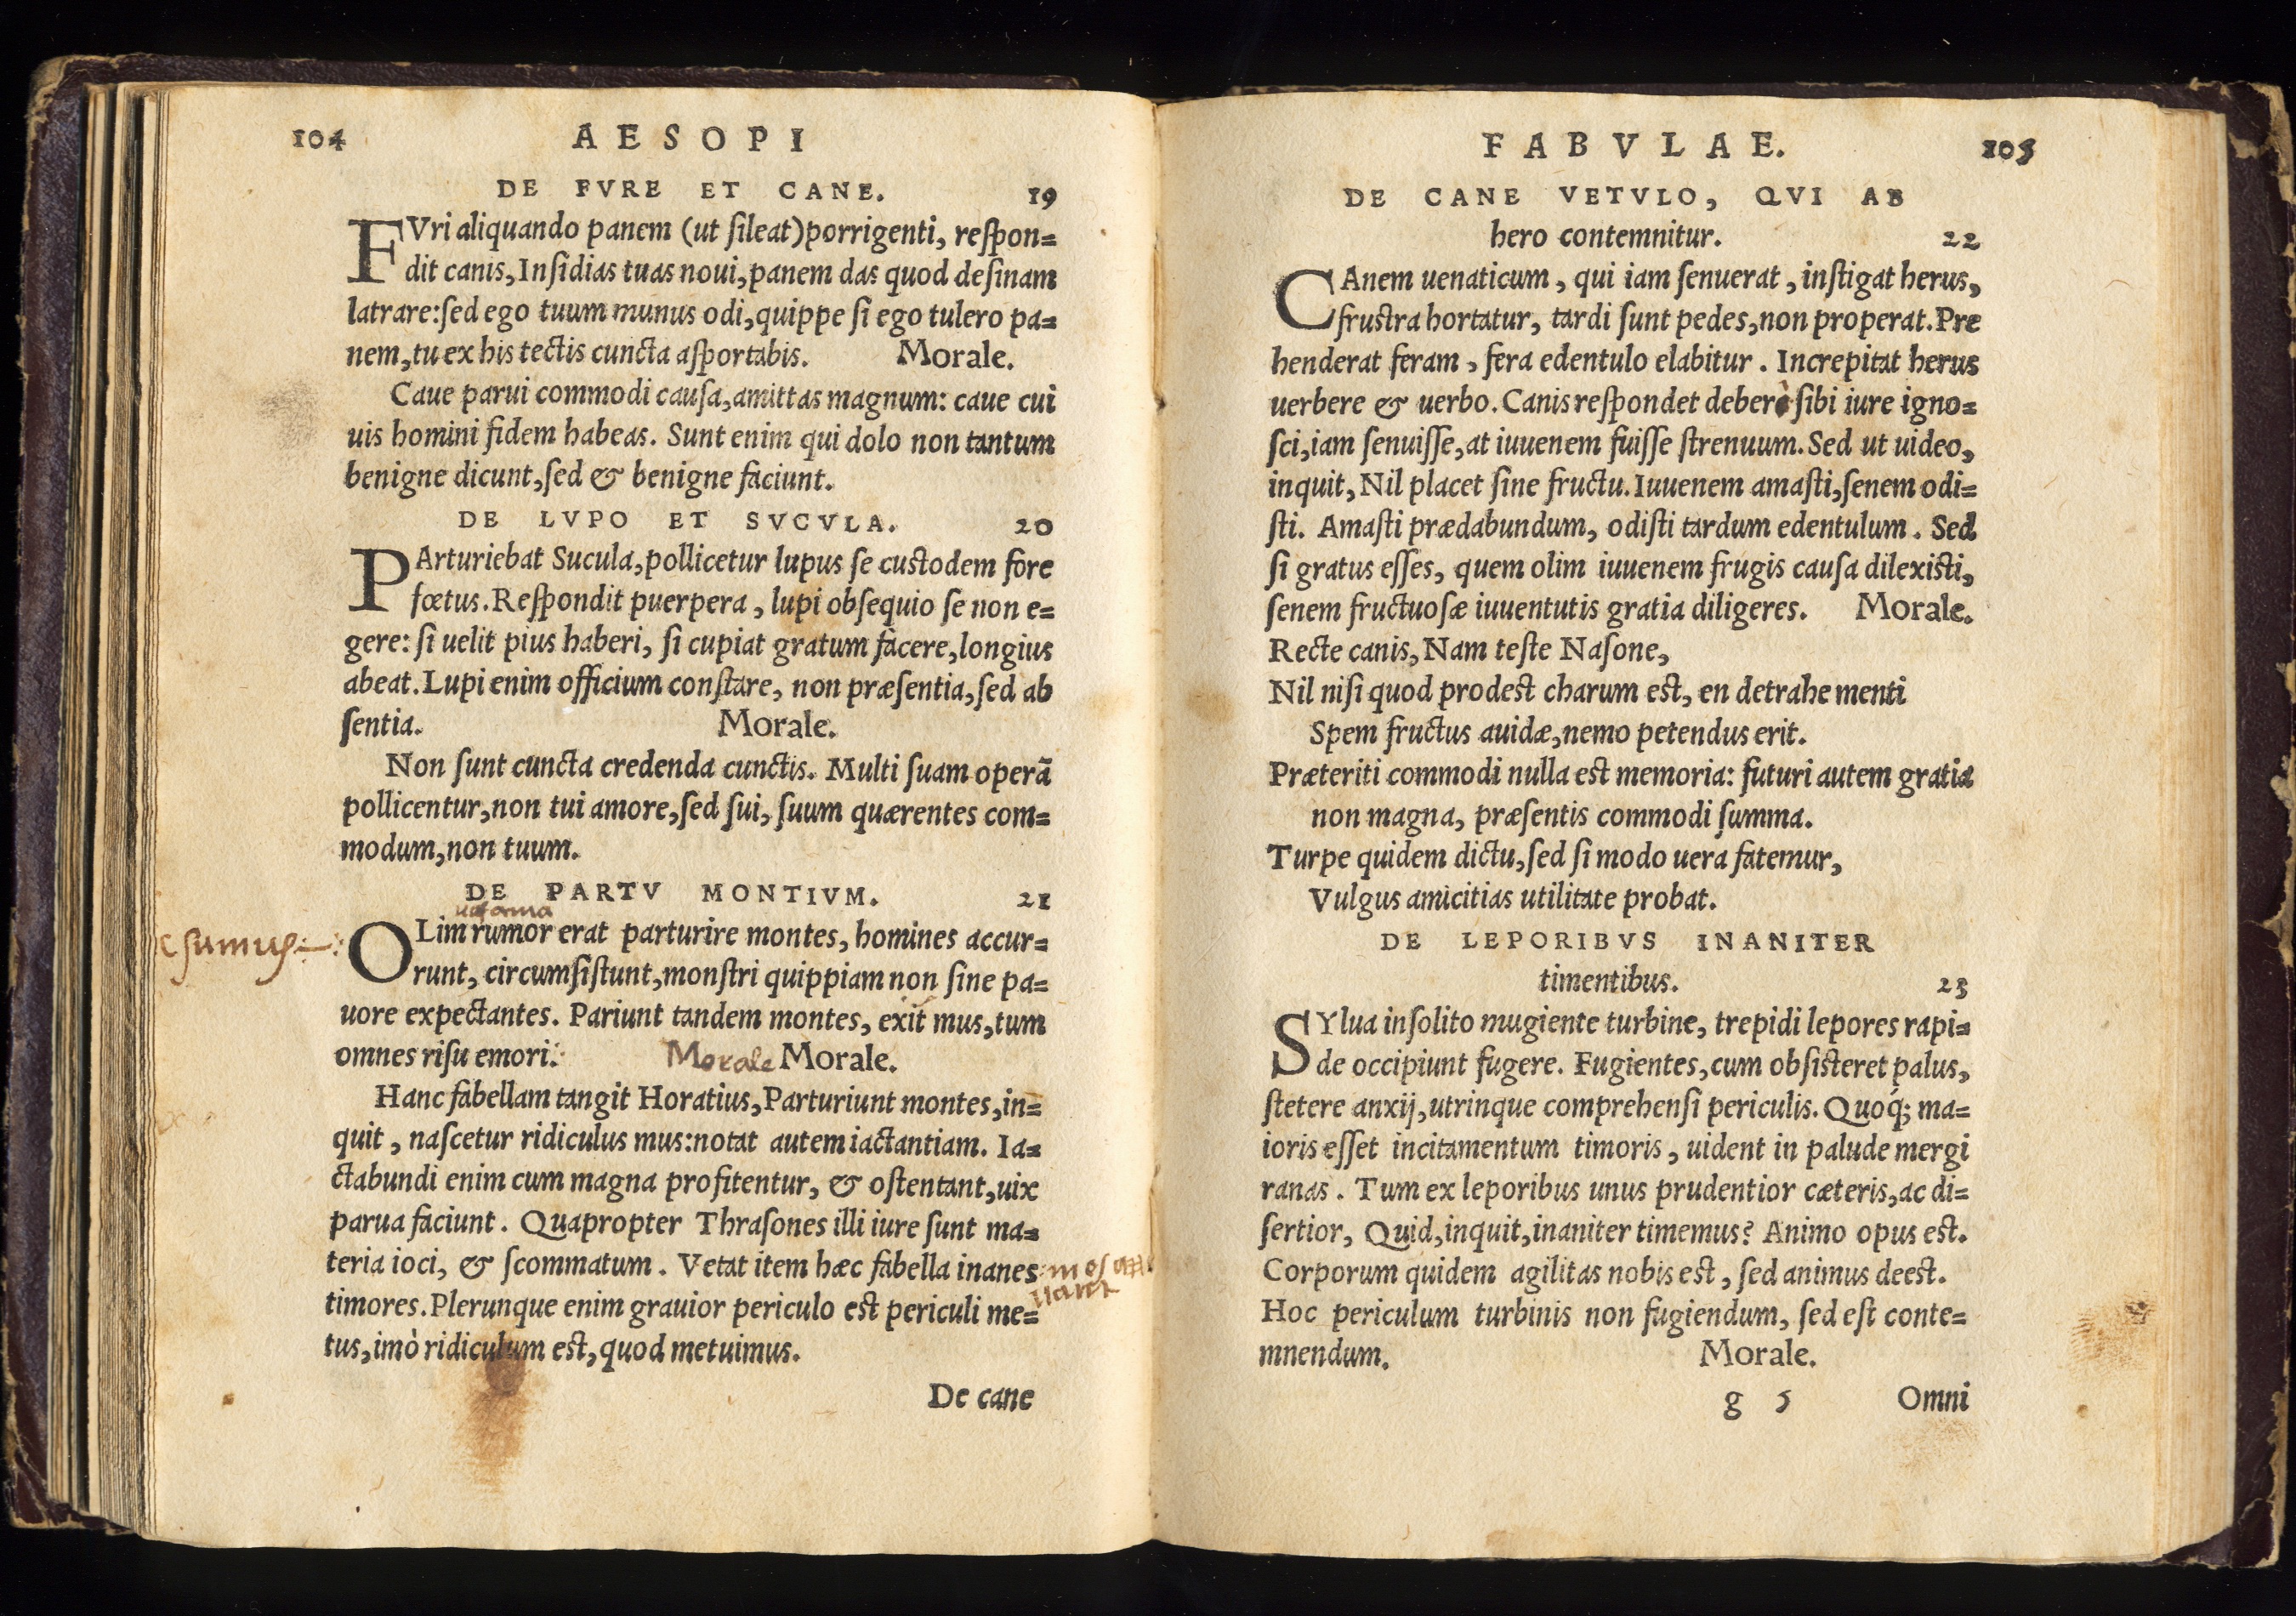 104 AESOPI
DE FVRE ET CANE. 19
FVri aliquando panem (ut ſileat) porrigenti, reſpon=
dit canis, Inſidias tuas noui, panem das quod deſinam
latrare: ſed ego tuum munus odi, quippe ſi ego tulero pa=
nem, tu ex his tectis cuncta aſportabis. Morale.
Caue parui commodi cauſa, amittas magnum: caue cui
uis homini fidem habeas. Sunt enim qui dolo non tantum
benigne dicunt, ſed & benigne faciunt.
DE LVPO ET SVCVLA. 20
PArturiebat Sucula, pollicetur lupus ſe custodem fore
fœtus. Reſpondit puerpera, lupi obſequio ſe non e=
gere: ſi uelit pius haberi, ſi cupiat gratum facere, longius
abeat. Lupi enim officium conſtare, non præſentia, ſed ab
ſentia. Morale.
Non ſunt cuncta credenda cunctis. Multi ſuam operã
pollicentur, non tui amore, ſed ſui, ſuum quærentes com=
modum, non tuum.
DE PARTV MONTIVM. 21
OLim rumor erat parturire montes, homines accur=
runt, circumſiſtunt, monſtri quippiam non ſine pa=
uore expectantes. Pariunt tandem montes, exit mus, tum
omnes riſu emori. Morale Morale.
Hanc fabellam tangit Horatius, Parturiunt montes, in=
quit, naſcetur ridiculus mus: notat autem iactantiam. Ia=
ctabundi enim cum magna profitentur, & oſtentant, uix
parua faciunt. Quapropter Thraſones illi iure ſunt ma=
teria ioci, & ſcommatum. Vetat item hæc fabella inanes
timores. Plerunque enim grauior periculo est periculi me=
tus, imò ridiculum est, quod metuimus.
De cane
FABVLAE. 105
DE CANE VETVLO, QVI AB
hero contemnitur. 22
CAnem uenaticum, qui iam ſenuerat, inſtigat herus,
frustra hortatur, tardi ſunt pedes, non properat. Pre
henderat feram, fera edentulo elabitur. Increpitat herus
uerbere & uerbo. Canis reſpondet debere ſibi iure igno=
ſci, iam ſenuiſſe, at iuuenem fuiſſe ſtrenuum. Sed ut uideo,
inquit, Nil placet ſine fructu. Iuuenem amaſti, ſenem odi=
ſti. Amaſti prædabundum, odiſti tardum edentulum. Sed
ſi gratus eſſes, quem olim iuuenem frugis cauſa dilexisti,
ſenem fructuoſæ iuuentutis gratia diligeres. Morale.
Recte canis, Nam teſte Naſone,
Nil niſi quod prodest charum est, en detrahe menti
Spem fructus auidæ, nemo petendus erit.
Præteriti commodi nulla est memoria: futuri autem gratia
non magna, præſentis commodi ſumma.
Turpe quidem dictu, ſed ſi modo uera fatemur,
Vulgus amicitias utilitate probat.
DE LEPORIBVS INANITER
timentibus. 23
SYlua inſolito mugiente turbine, trepidi lepores rapi=
de occipiunt fugere. Fugientes, cum obſisteret palus,
ſtetere anxij, utrinque comprehenſi periculis. Quoq́; ma=
ioris eſſet incitamentum timoris, uident in palude mergi
ranas. Tum ex leporibus unus prudentior cæteris, ac di=
ſertior, Quid, inquit, inaniter timemus? Animo opus est.
Corporum quidem agilitas nobis est, ſed animus deest.
Hoc periculum turbinis non fugiendum, ſed eſt conte=
mnendum. Morale.
g 5 Omni